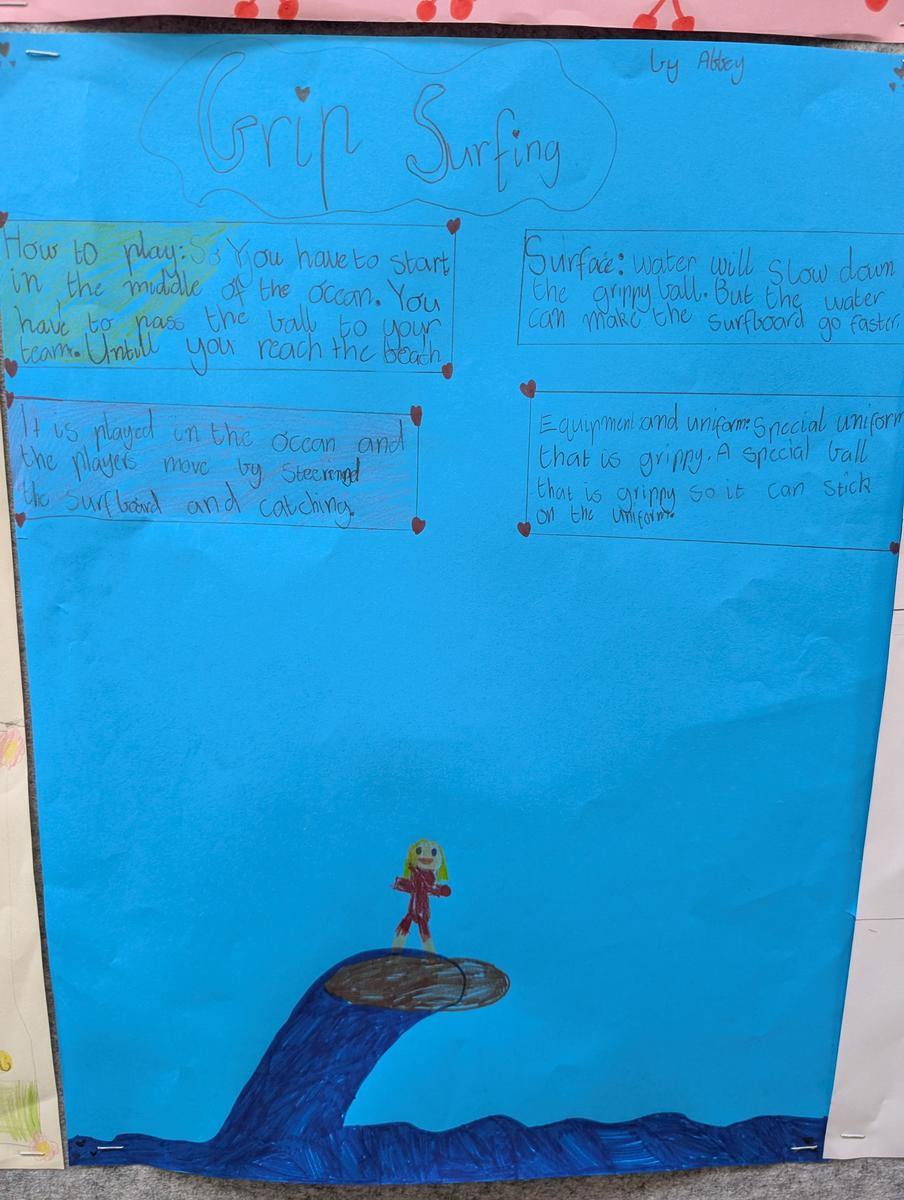 by Abbey
Grip Surfing
How to play: So You have to start
in the middle of the ocean. You
have to pass the ball to your
team. Untill you reach the beach
It is played in the ocean and
the players move by steering
the surfboard and catching.
Surface: water will slow down
the grippy ball. But the water
can make the surfboard go faster.
Equipment and uniform: Special uniform
that is grippy. A special ball
that is grippy so it can stick
on the uniform.